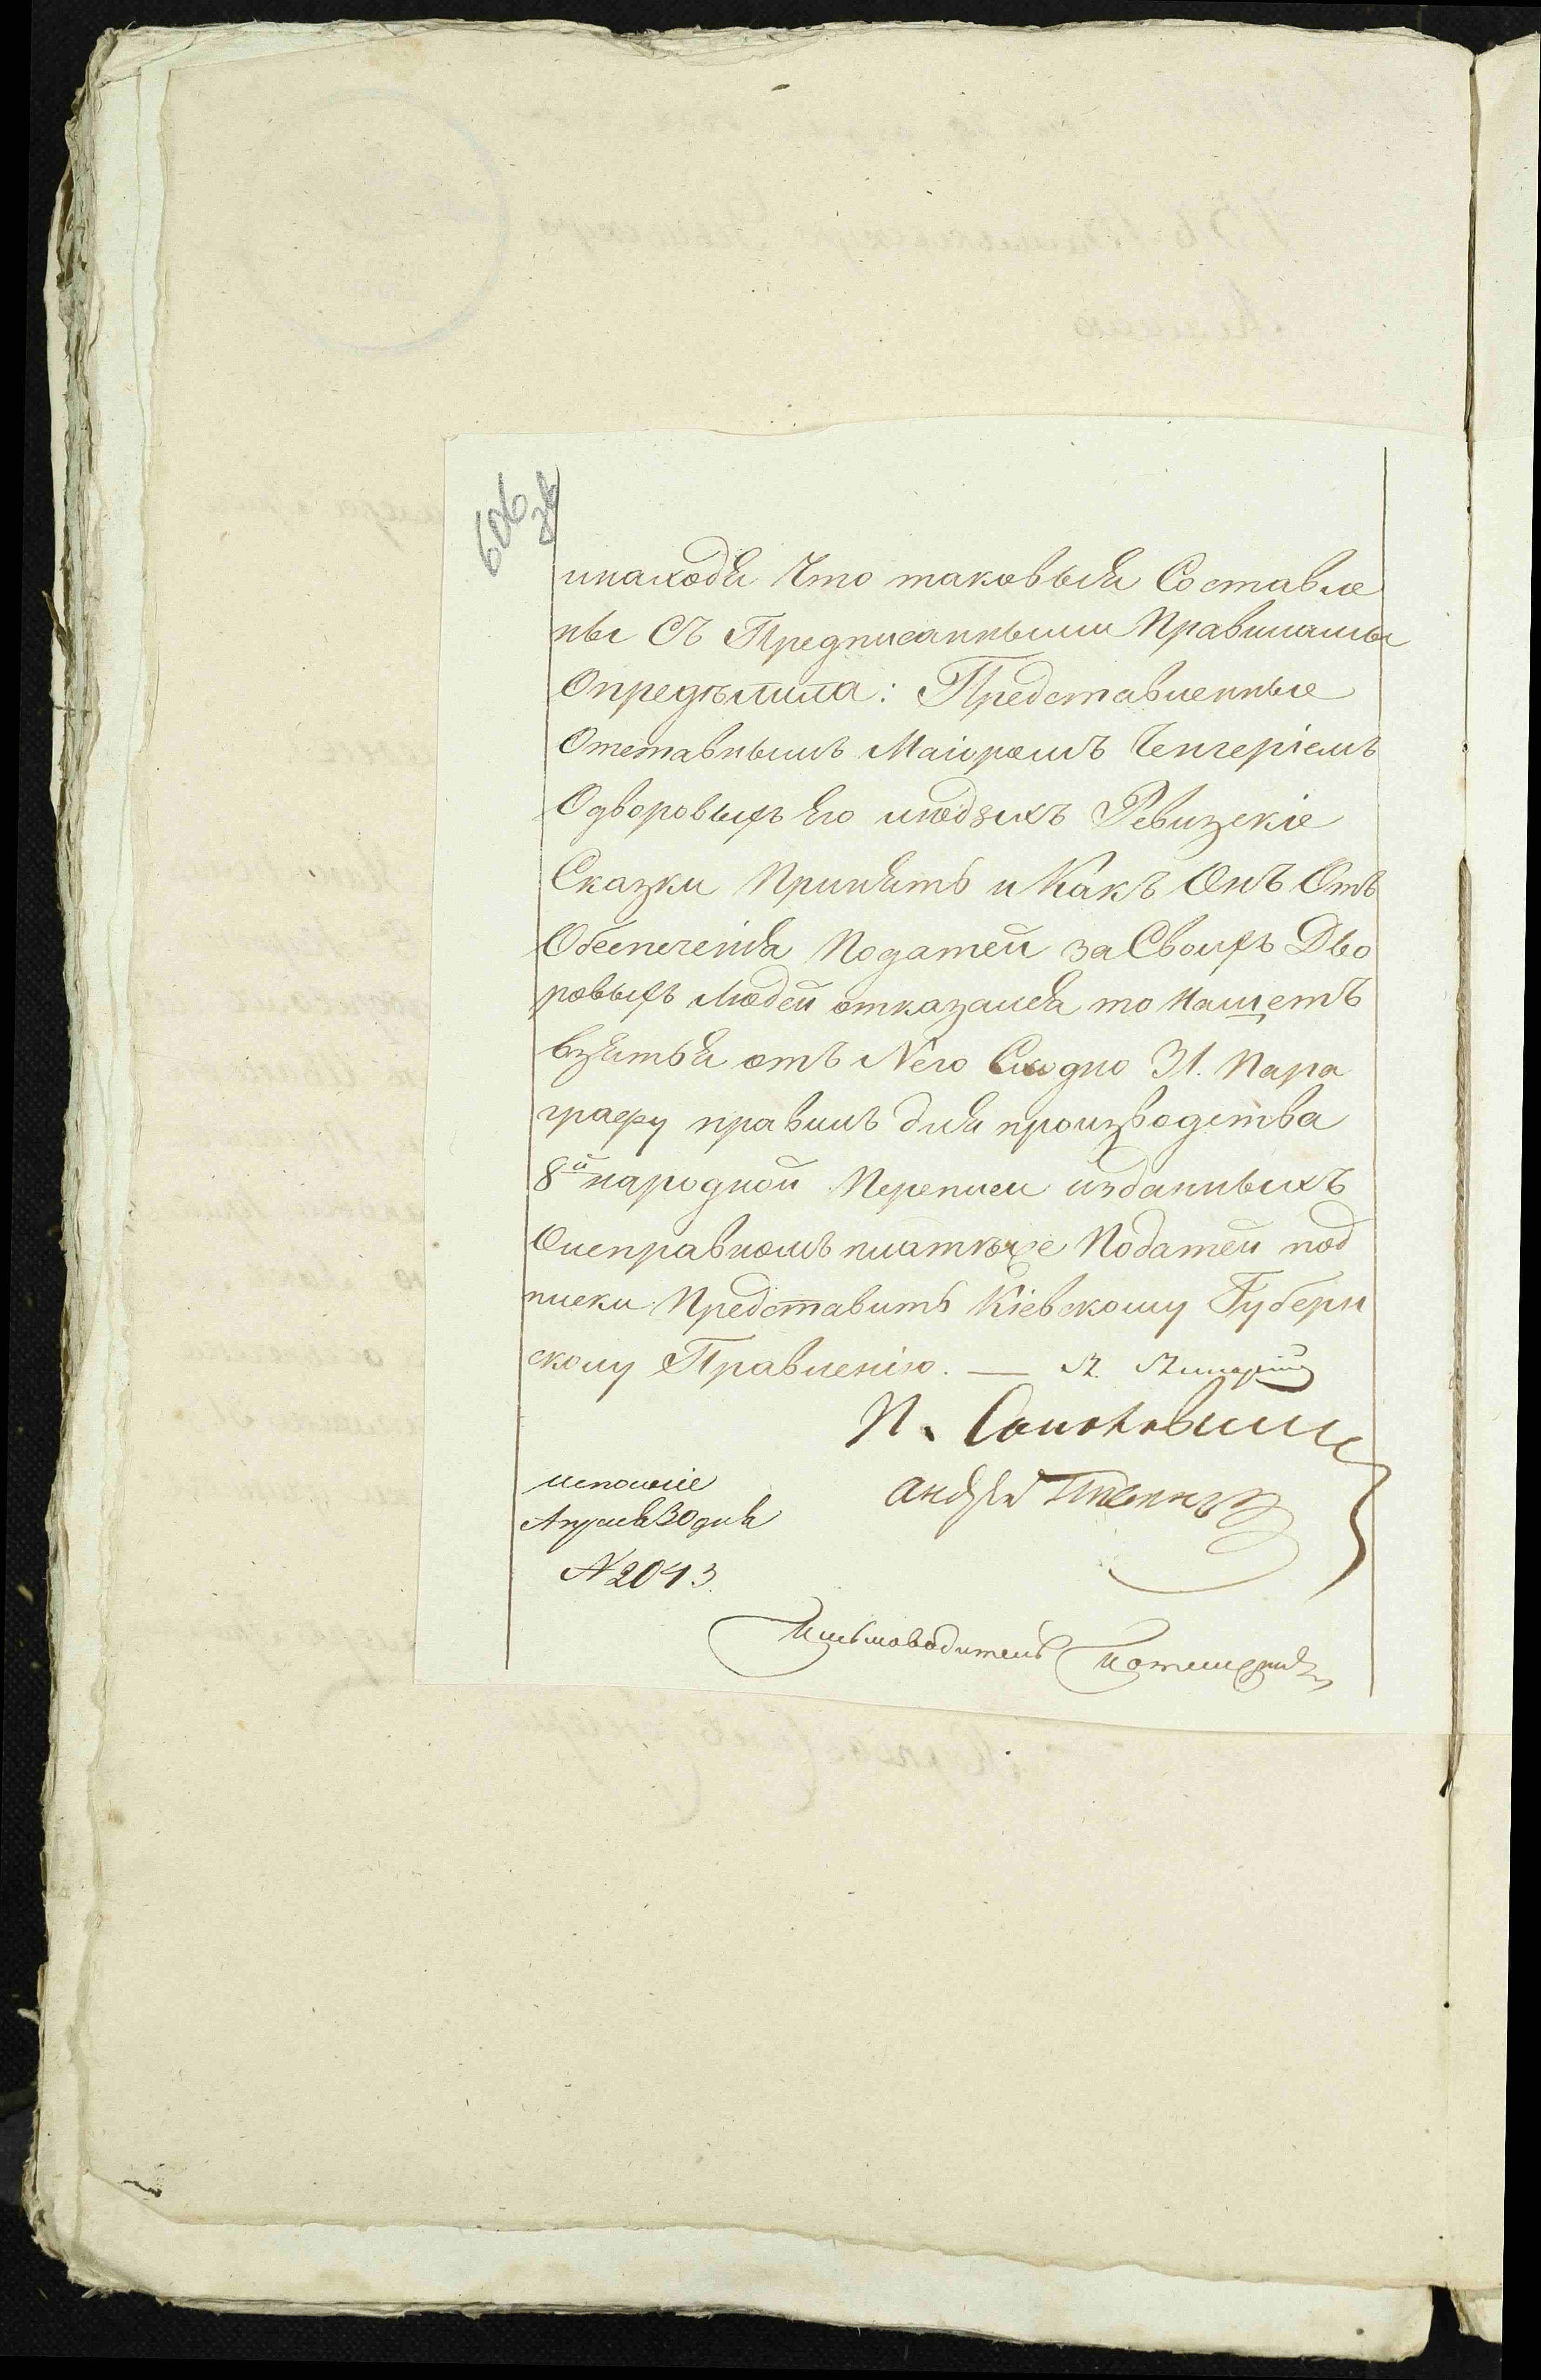 606
зв
инаходя Что таковыя Составле
ны Съ Предписанными Правилами
Опредѣлила: Представленные
Отставнымъ Маіоромъ Ченгеріемъ
Одворовыхъ Его людяхъ Ревизскіе
Сказки Принять и Какъ Онъ Отъ
Обеспеченія Податей за Своихъ Дво
ровыхъ Людей отказался то Нащетъ
взятья отъ Него Сходно 31. Пара
графу правилъ для производства
8й народной Переписи изданныхъ
Оисправномъ платѣже Податей под
писки Представить Кіевскому Губерн
скому Правленію. —
П.
Андрей
исполненіе
Апреля 30 дня
№ 2043.
Письмоводитель